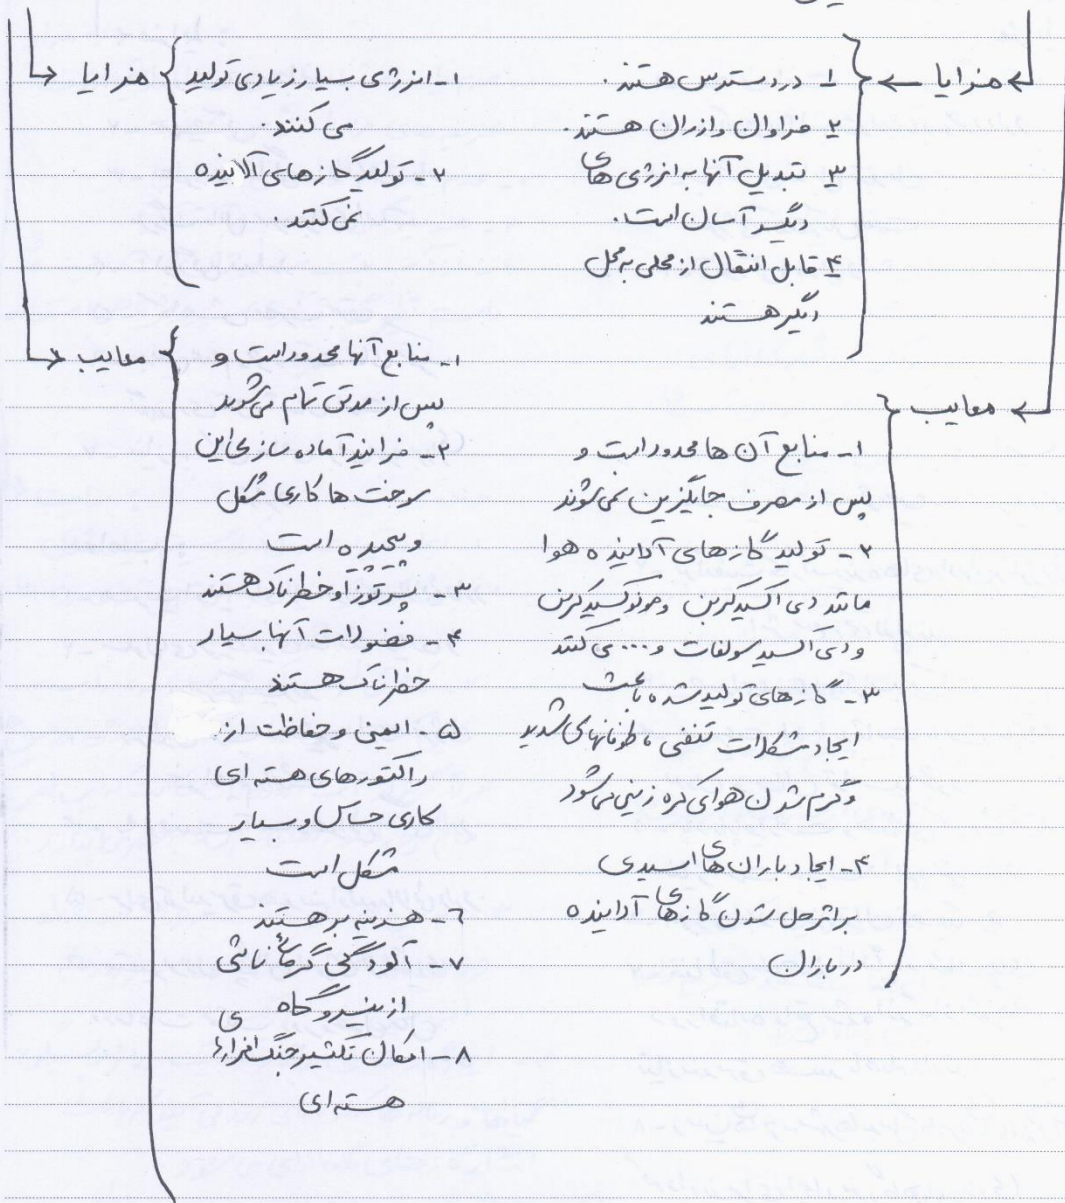 مزایا
۱ـ در دسترس هستند.
۲ـ فراوان و ارزان هستند.
۳ـ تبدیل آنها به انرژی های
دیگر آسان است.
۴ـ قابل انتقال از محلی به محل
دیگر هستند
معایب
۱ـ منابع آن ها محدود است و
پس از مصرف جایگزین نمی شوند
۲ـ تولید گازهای آلاینده هوا
مانند دی اکسید کربن و مونوکسید کربن
و دی اکسید سولفات و ... می کنند
۳ـ گازهای تولید شده باعث
ایجاد مشکلات تنفسی، طوفانهای شدید
و گرم شدن هوای کره زمین می شود
۴ـ ایجاد باران های اسیدی
بر اثر حل شدن گازهای آلاینده
در باران
مزایا
۱ـ انرژی بسیار زیادی تولید
می کنند
۲ـ تولید گازهای آلاینده
نمی کنند.
معایب
۱ـ منابع آنها محدود است و
پس از مدتی تمام می شوند
۲ـ فرایند آماده سازی این
سوخت ها کاری مشکل
و پیچیده است
۳ـ پرتوزا و خطرناک هستند
۴ـ فضولات آنها بسیار
خطرناک هستند
۵ـ ایمنی و حفاظت از
راکتورهای هسته ای
کاری حساس و بسیار
مشکل است
۶ـ هزینه بر هستند
۷ـ آلودگی گرمائی ناشی
از نیروگاه
۸ـ امکان تکثیر جنگ افزارهای
هسته ای